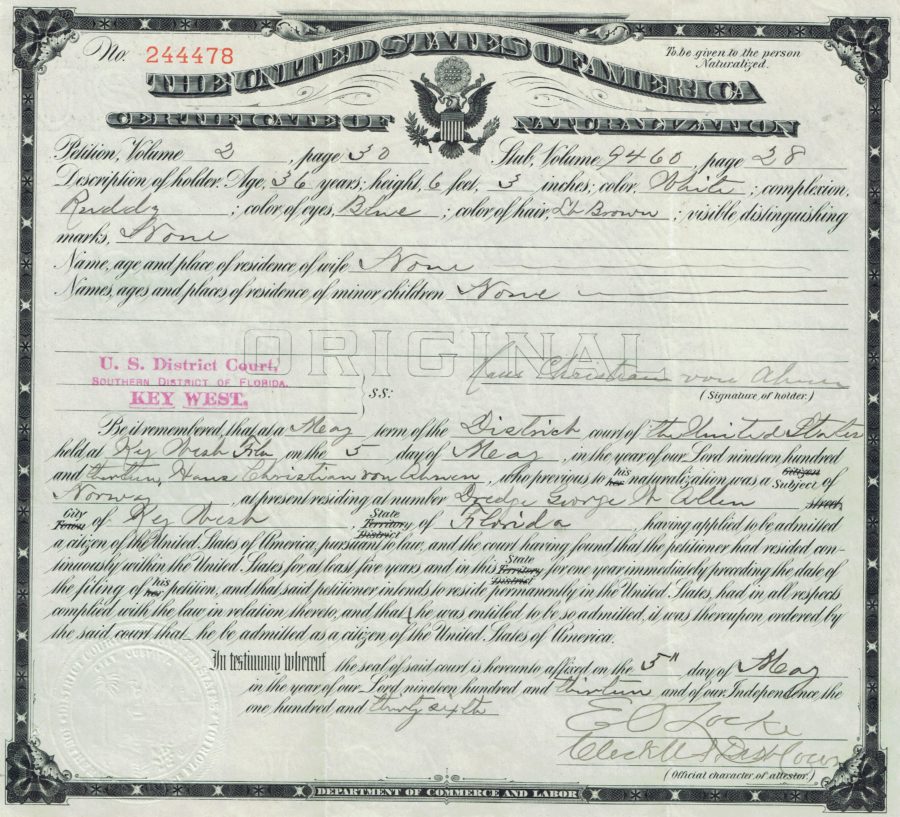 No. 244478
To be given to the person
Naturalized.
THE UNITED STATES OF AMERICA
CERTIFICATE OF NATURALIZATION
Petition, Volume 2, page 30 Stub, Volume 9460, page 28
Description of holder. Age, 36 years; height, 6 feet, 3 inches; color, White; complexion,
Ruddy; color of eyes, Blue; color of hair, Lt Brown; visible distinguishing
marks, None
Name, age and place of residence of wife None
Names, ages and places of residence of minor children None
ORIGINAL
U. S. District Court,
SOUTHERN DISTRICT OF FLORIDA,
KEY WEST.
ss:
Hans Christian von Ahnen
(Signature of holder.)
Be it remembered, that at a May term of the District court of the United States
held at Key West Fla on the 5 day of May, in the year of our Lord nineteen hundred
and thirteen, Hans Christian von Ahnen, who previous to his her naturalization was a Citizen Subject of
Norway, at present residing at number Dredge George W Allen street
City Town of Key West, State Territory District of Florida, having applied to be admitted
a citizen of the United States of America, pursuant to law, and the court having found that the petitioner had resided con-
tinuously within the United States for at least five years and in this State Territory District for one year immediately preceding the date of
the filing of his her petition, and that said petitioner intends to reside permanently in the United States, had in all respects
complied with the law in relation thereto, and that he was entitled to be so admitted, it was thereupon ordered by
the said court that he be admitted as a citizen of the United States of America.
In testimony whereof the seal of said court is hereunto affixed on the 5" day of May
in the year of our Lord nineteen hundred and thirteen and of our Independence the
one hundred and thirty sixth
E O Locke
Clerk U S Dist Court
(Official character of attestor.)
DEPARTMENT OF COMMERCE AND LABOR